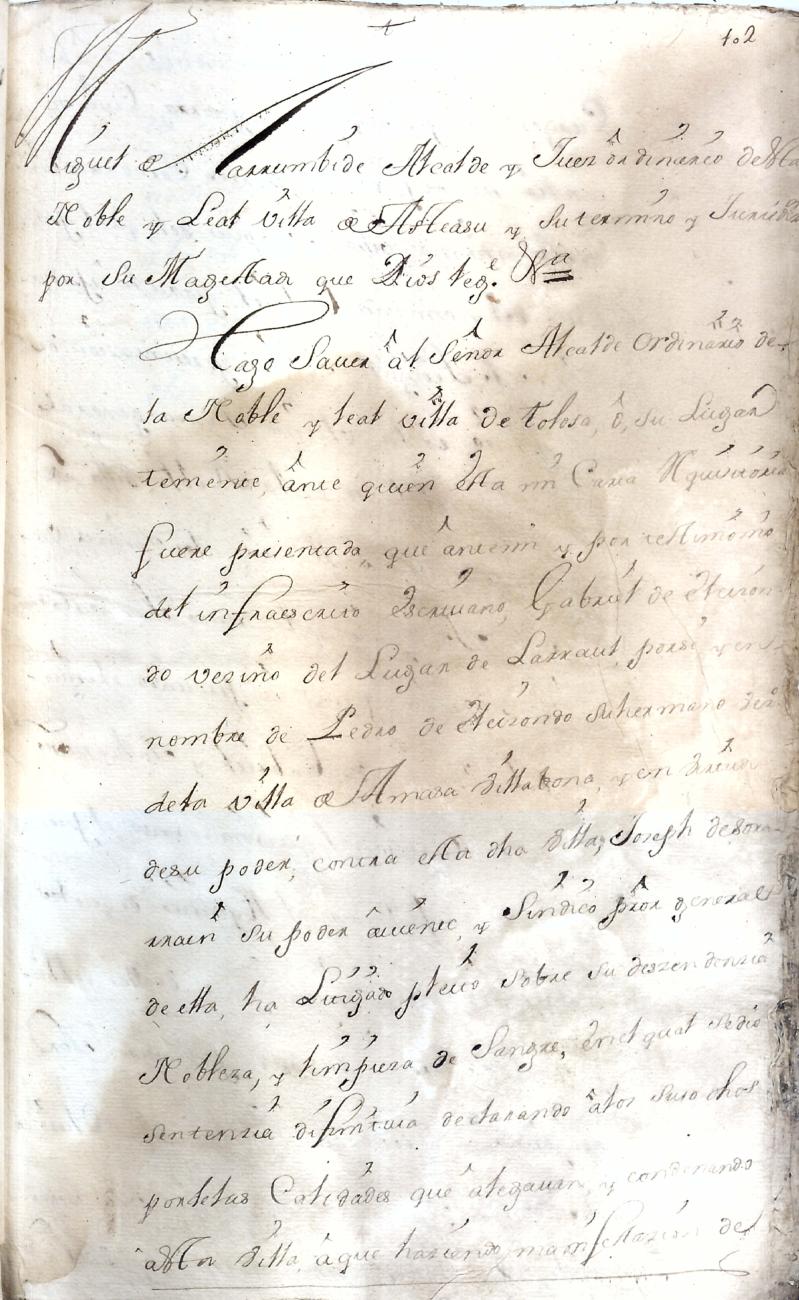 102
Miguel de Larrumbide Alcalde y Juez ordinario desta
Noble y Leal villa de Asteasu y su termino y
por Su Magestad que Dios
Hago Saver al Señor Alcalde Ordinario de
la Noble y leal villa de tolosa, o, su Lugar
teniente, ante quien esta mi Carta Requisitoria
fuere presentada, que antemi y por testimonio
del infraescrito escrivano, Gabriel de Aeizon
do vezino del Lugar de Larraul, porsi y en
nombre de Pedro de Aeizondo su hermano
dela villa de Amasa Villabona, y en virtud
desu poder, contra esta dha villa, Joseph de
rrain su poder aviente, y Sindico pror general
de ella, ha Litigado pleito sobre su deszendenzia
Nobleza, y limpieza de Sangre, en el qual se dio
sentenzia difinitiva declarando alos suso dhos
portales Calidades que alegavan, y condenando
a esta villa, a que haziendo manifestazion de